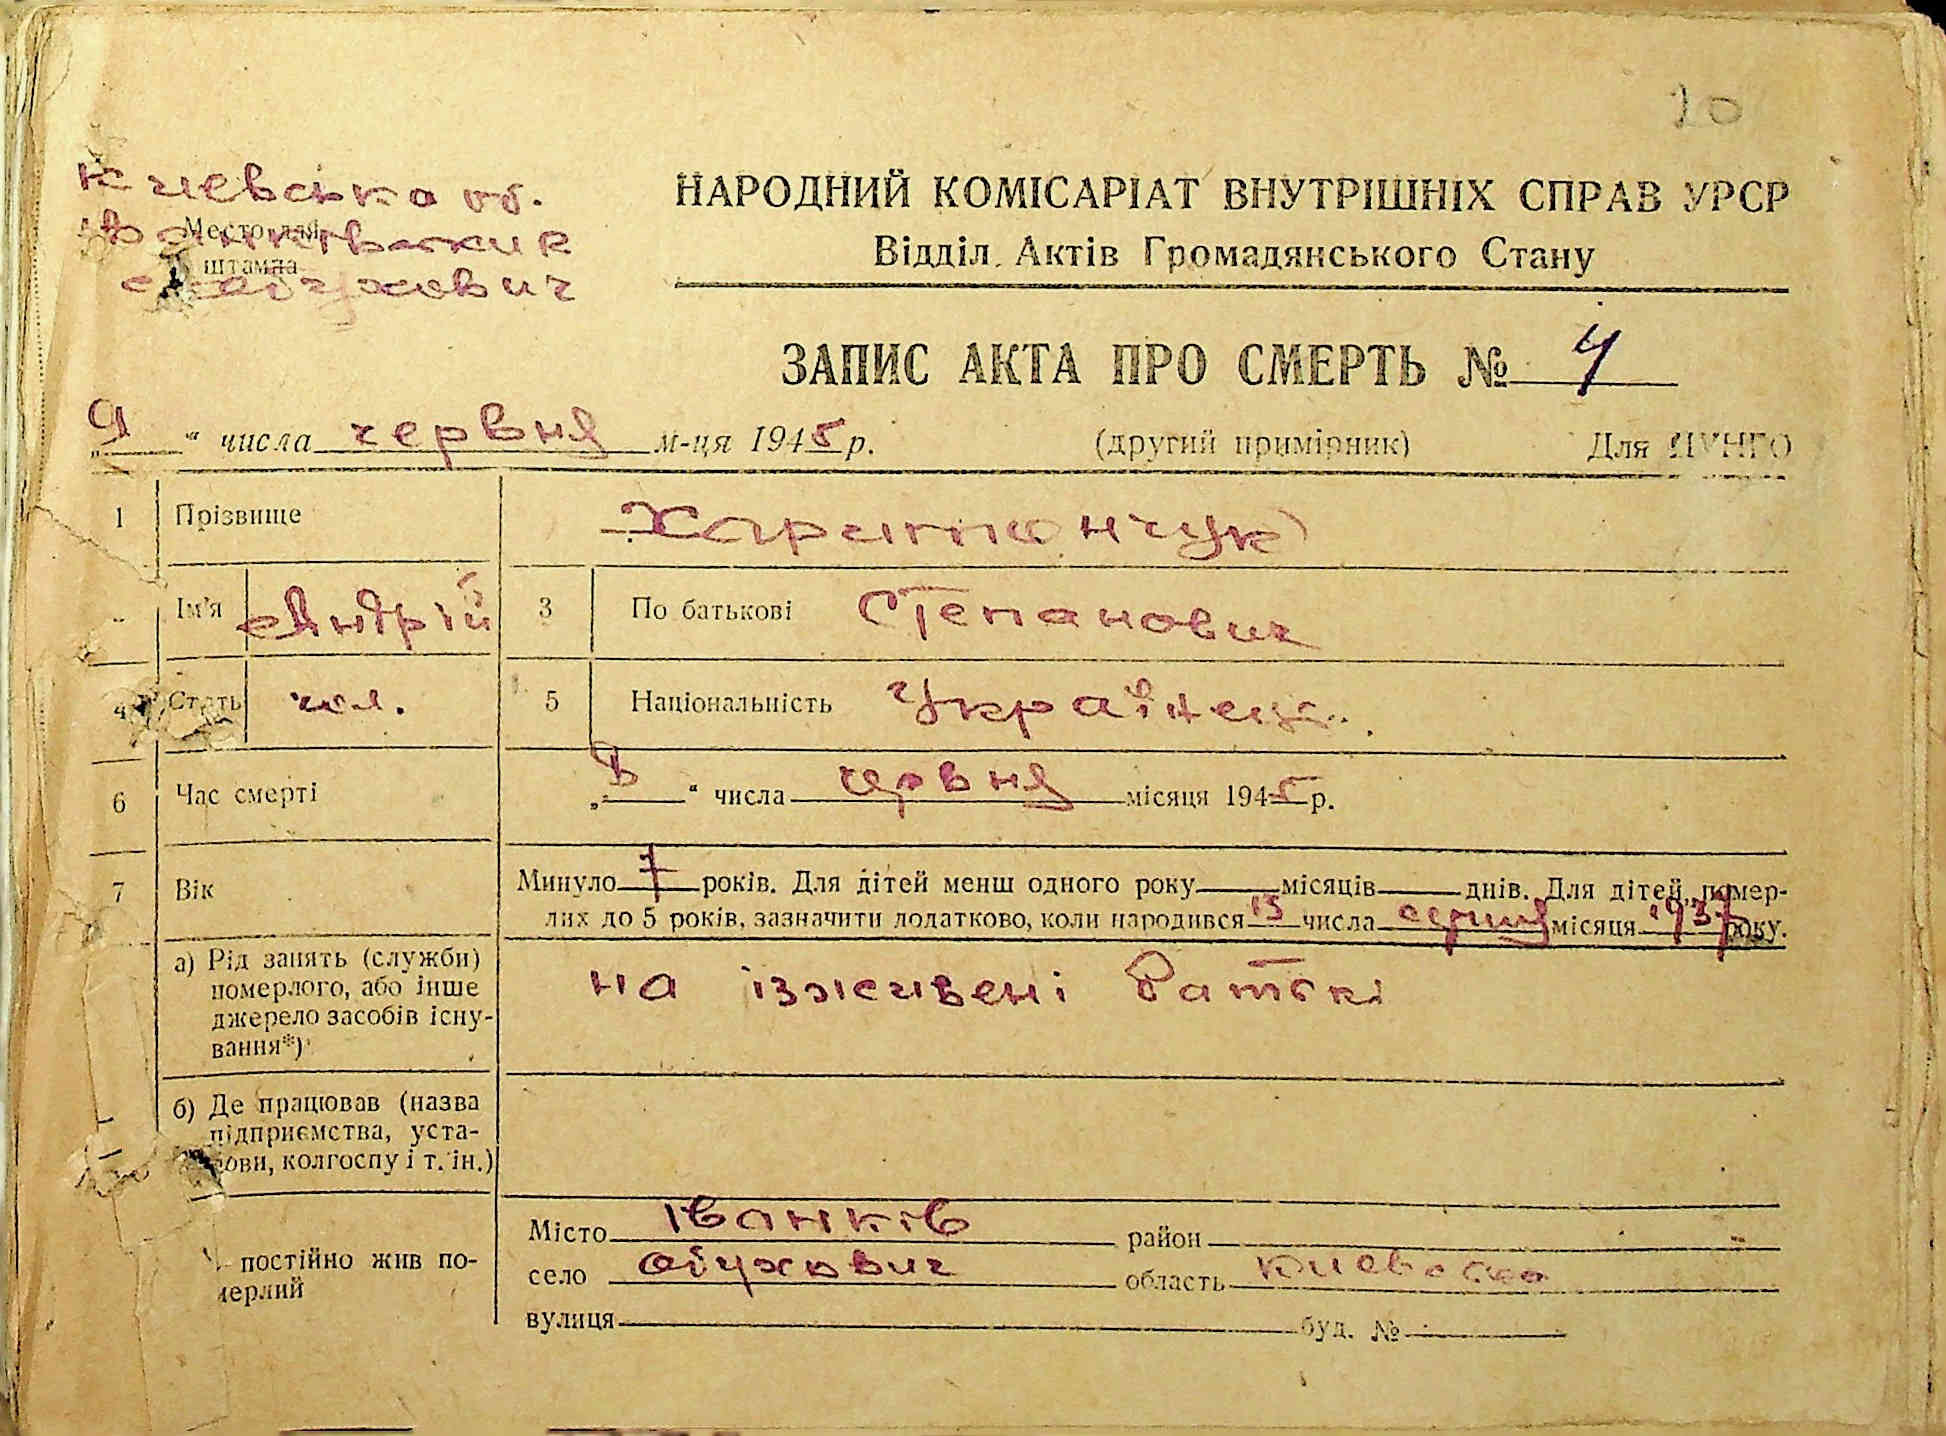 20
Киевська об.
Место для
штампа
с Обухович
НАРОДНИЙ КОМІСАРІАТ ВНУТРІШНІХ СПРАВ УРСР
Відділ Актів Громадянського Стану
ЗАПИС АКТА ПРО СМЕРТЬ № 4
„9“ числа червня м-ця 1945 р. (другий примірник) Для ЦУНГО
1 Прізвище Харитончук
Ім'я Андрій 3 По батькові Степанович
4 Стать чол. 5 Національність Українець.
6 Час смерті „8“ числа червня місяця 1945 р.
7 Вік Минуло 7 років. Для дітей менш одного року місяців днів. Для дітей, помер-
лих до 5 років, зазначити додатково, коли народився 13 числа серпня місяця 1937 року.
а) Рід занять (служби) померлого, або інше джерело засобів існу-вання*) на ізживені батькі
б) Де працював (назва підприємства, уста-нови, колгоспу і т. ін.)
постійно жив по-мерлий
Місто Іванків район
село Обухович область Киевска
вулиця буд. №